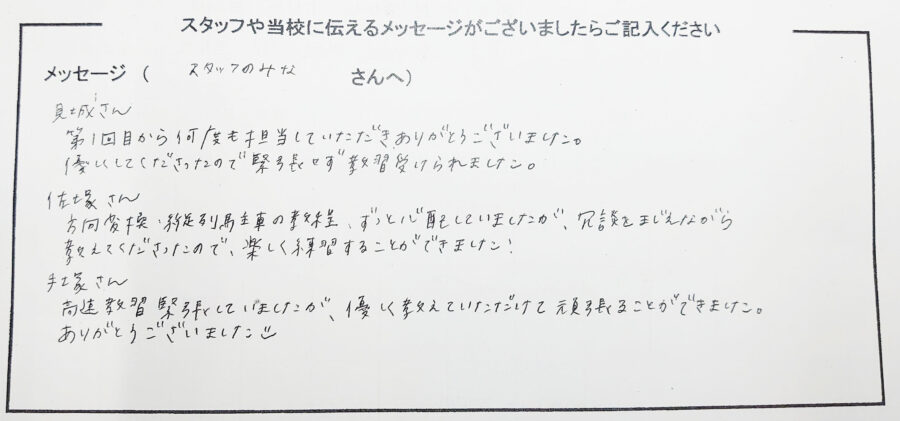 スタッフや当校に伝えるメッセージがございましたらご記入ください
メッセージ ( スタッフのみな さんへ)
見城さん
第1回目から何度も担当していただきありがとうございました。
優しくしてくださったので緊張せず教習受けられました。
佐塚さん
方向変換・縦列駐車の教程、ずっと心配していましたが、冗談をまじえながら
教えてくださったので、楽しく練習することができました!
手塚さん
高速教習緊張していましたが、優しく教えていただけて頑張ることができました。
ありがとうございました